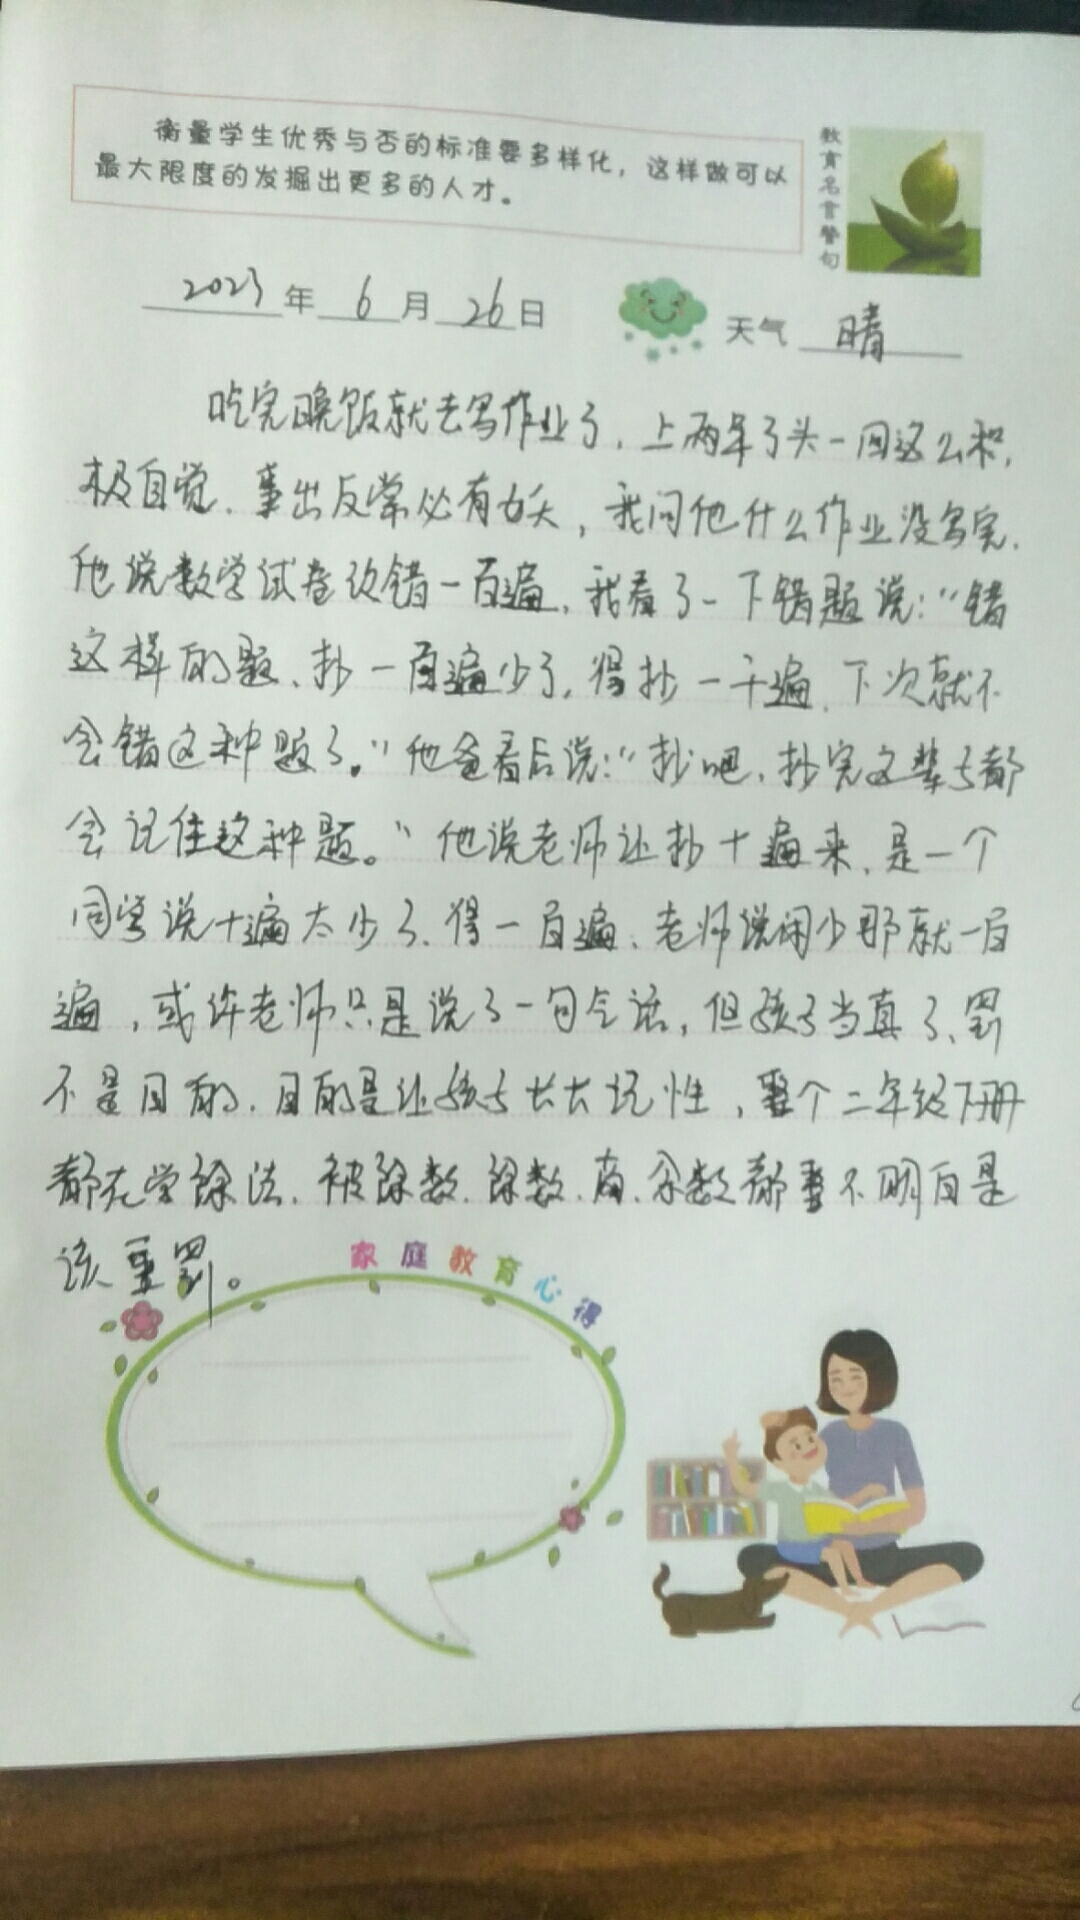 衡量学生优秀与否的标准要多样化，这样做可以
最大限度的发掘出更多的人才。
教育名言警句
2023年6月26日
天气 晴
吃完晚饭就去写作业了，上两年了头一回这么积
极自觉，事出反常必有妖，我问他什么作业没写完，
他说数学试卷改错一百遍，我看了一下错题说：“错
这样的题、抄一百遍少了，得抄一千遍，下次就不
会错这种题了。”他爸看后说：“抄吧，抄完这辈子都
会记住这种题。”他说老师让抄十遍来，是一个
同学说十遍太少了、得一百遍、老师说闲少那就一百
遍，或许老师只是说了一句气话，但孩子当真了、罚
不是目的，目的是让孩子长长记性，整个二年级下册
都在学除法，被除数、除数、商、余数都整不明白是
该重罚。
家庭教育心得